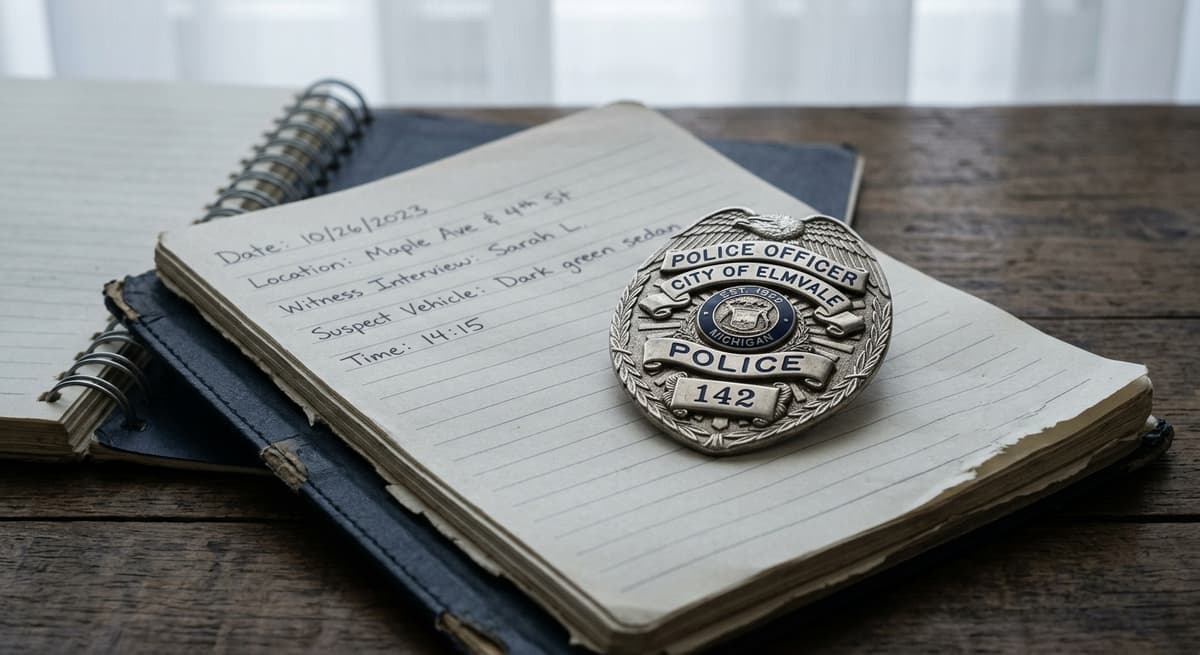 Date: 10/26/2023
Location: Maple Ave & 4th St
Witness Interview: Sarah L.
Suspect Vehicle: Dark green sedan
Time: 14:15
POLICE OFFICER
CITY OF ELMVALE
EST.
MICHIGAN
POLICE
142